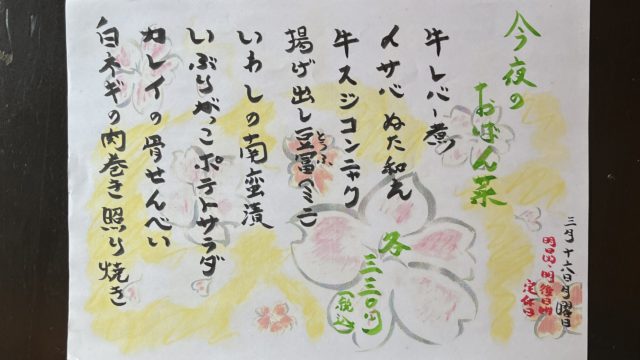 今夜の
おばん菜
牛レバー煮
イサバ ぬた和え
牛スジコンニャク
揚げ出し豆冨(ミニ)
とうふ
いわしの南蛮漬
いぶりがっこポテトサラダ
カレイの骨せんべい
白ネギの肉巻き照り焼き
各
三三〇円
(税込)
三月十六日月曜日
定休日